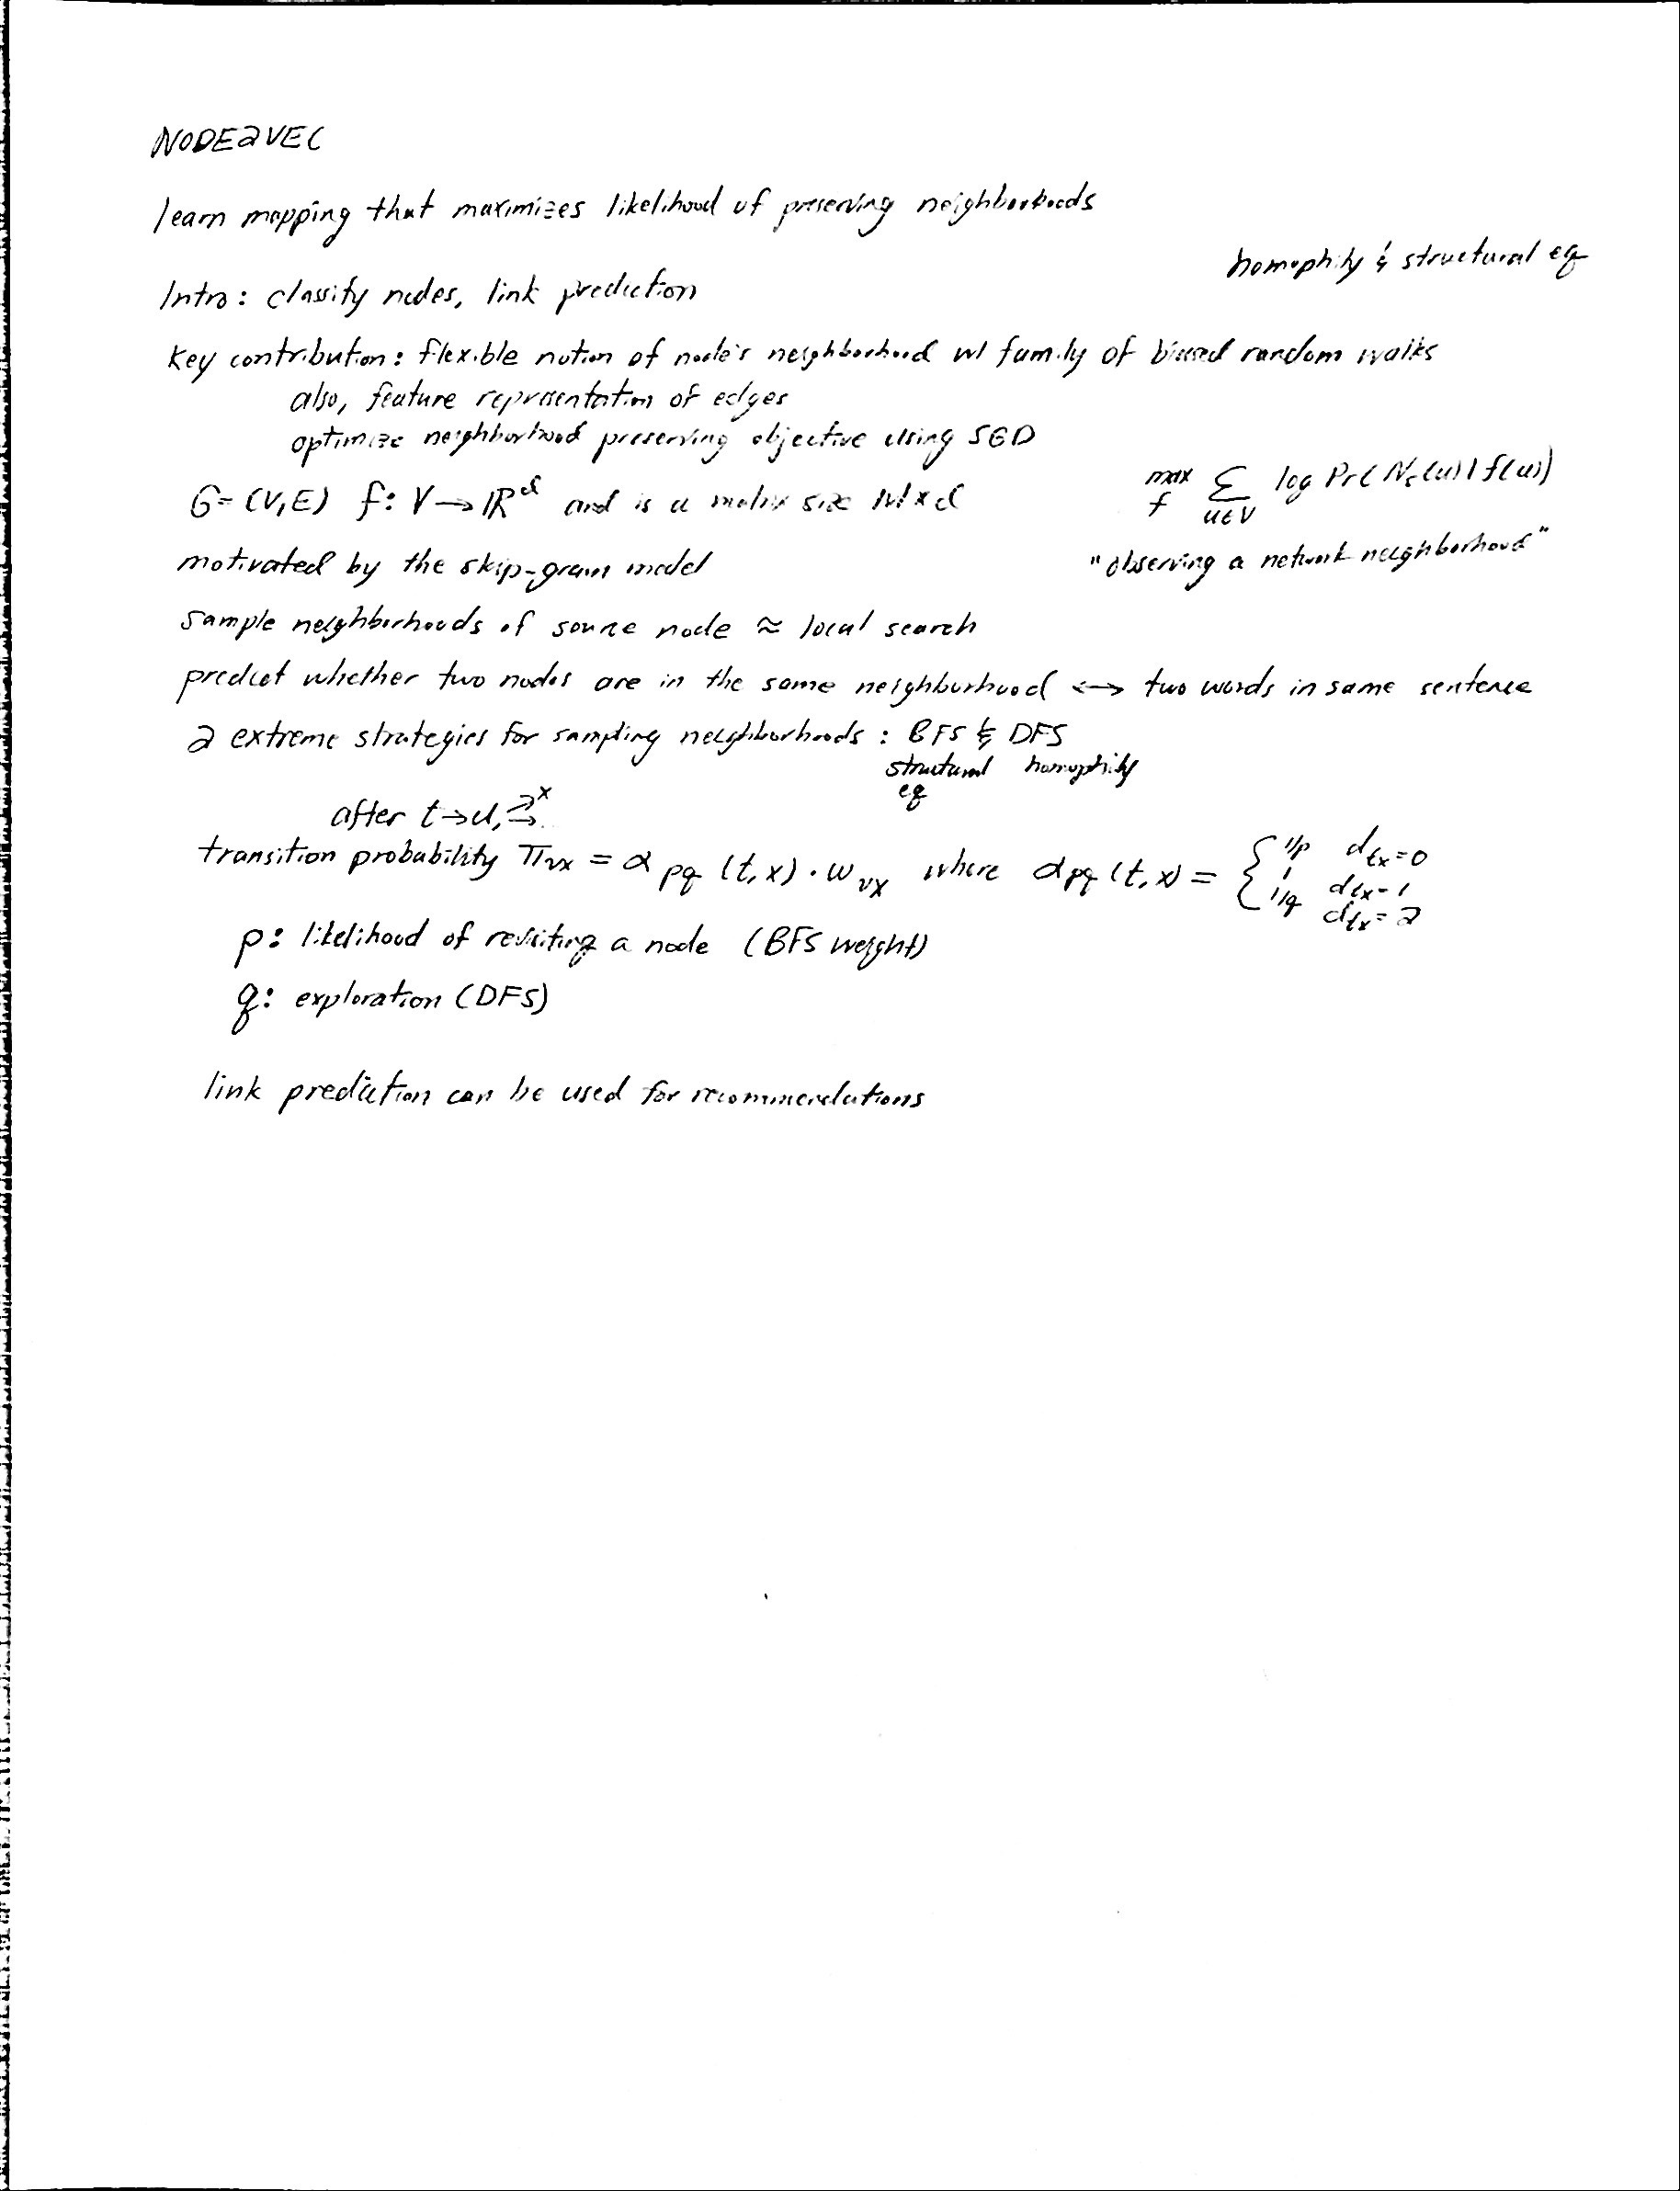 NODE2VEC
learn mapping that maximizes likelihood of preserving neighborhoods
homophily & structural eq
Intro: classify nodes, link prediction
key contribution: flexible notion of node's neighborhood w/ family of biased random walks
also, feature representation of edges
optimize neighborhood preserving objective using SGD
G=(V,E) f: V→ℝ^d and is a matrix size |V|×d
max_f Σ_{u∈V} log Pr(N_s(u)|f(u))
motivated by the skip-gram model
"observing a network neighborhood"
sample neighborhoods of source node ≈ local search
predict whether two nodes are in the same neighborhood ↔ two words in same sentence
2 extreme strategies for sampling neighborhoods: BFS & DFS
structural eq homophily
after t→u, →x
transition probability π_vx = α_pq(t,x)·w_vx where α_pq(t,x) = { 1/p d_tx=0
1 d_tx=1
1/q d_tx=2
p: likelihood of revisiting a node (BFS weight)
q: exploration (DFS)
link prediction can be used for recommendations